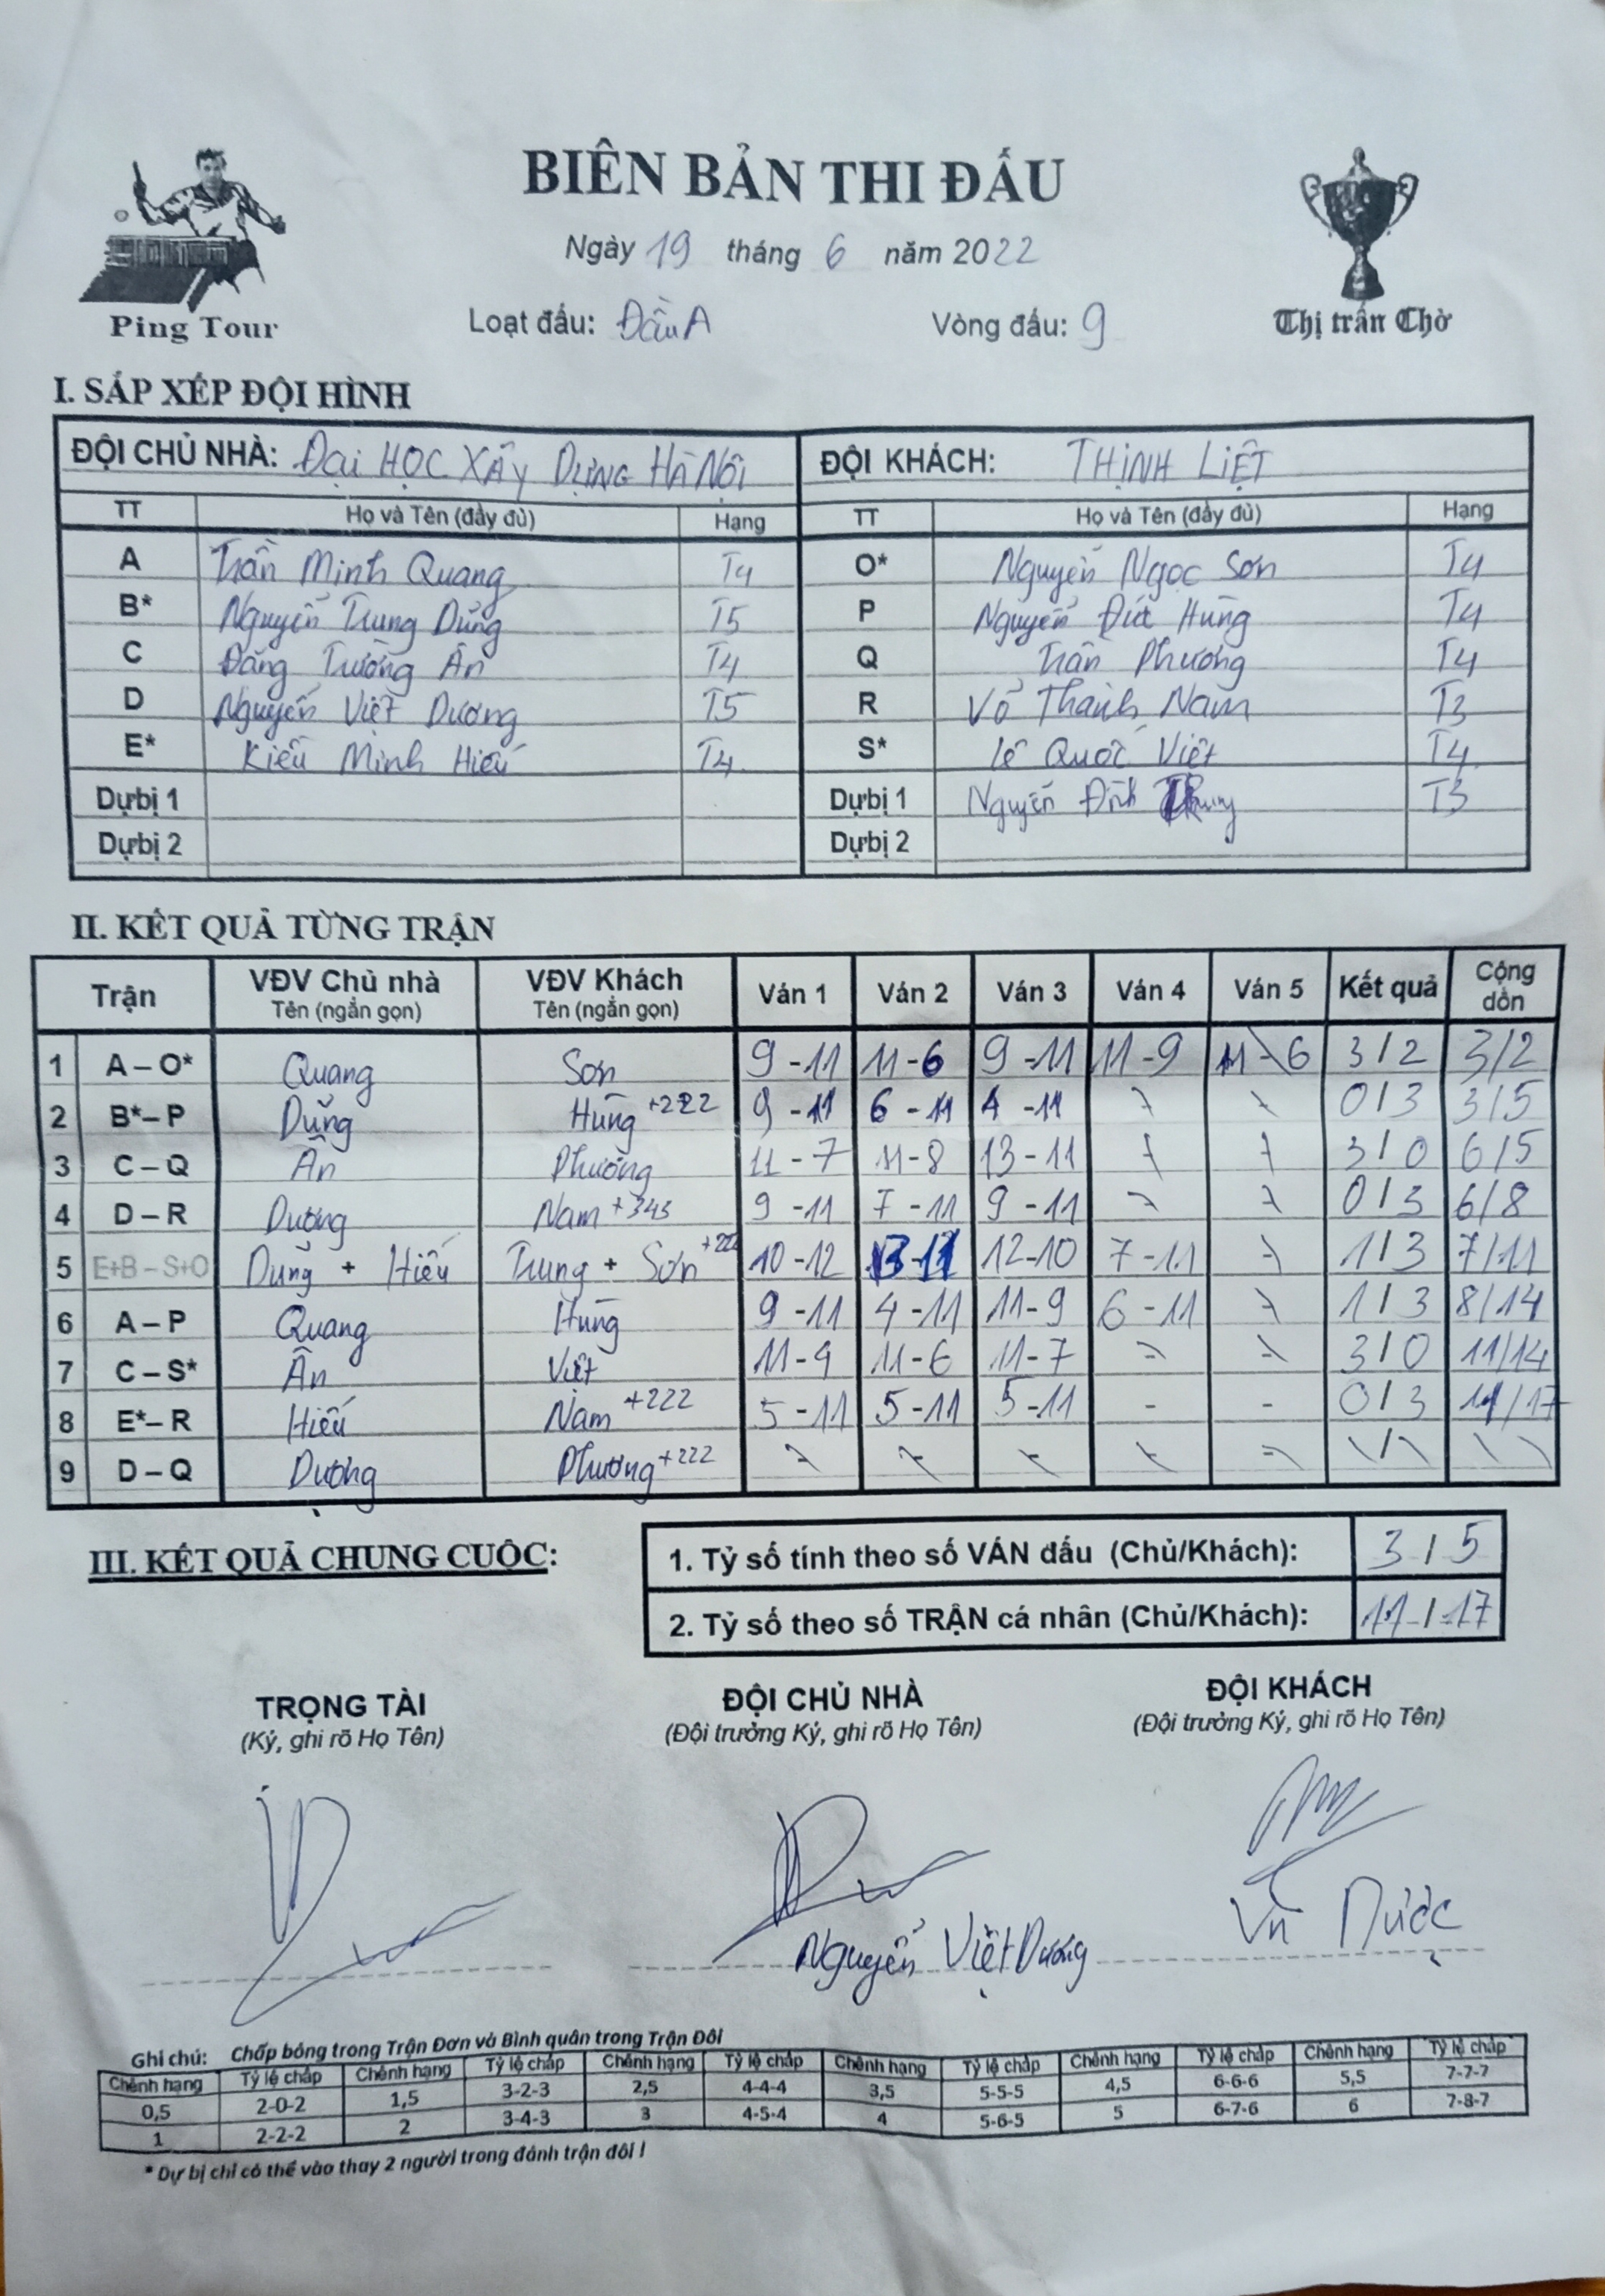 BIÊN BẢN THI ĐẤU
Ngày 19 tháng 6 năm 2022
Ping Tour
Loạt đấu: Đầu A Vòng đấu: 9
Thị trấn Chờ
I. SẮP XẾP ĐỘI HÌNH
ĐỘI CHỦ NHÀ: ĐẠI HỌC XÂY DỰNG HÀ NỘI ĐỘI KHÁCH: THỊNH LIỆT
TT Họ và Tên (đầy đủ) Hạng TT Họ và Tên (đầy đủ) Hạng
A Trần Minh Quang T4 O* Nguyễn Ngọc Sơn T4
B* Nguyễn Trung Dũng T5 P Nguyễn Đức Hùng T4
C Đặng Trường Ân T4 Q Trần Phương T4
D Nguyễn Việt Dương T5 R Võ Thành Nam T3
E* Kiều Minh Hiếu T4 S* Lê Quốc Việt T4
Dự bị 1 Dự bị 1 Nguyễn Đình T3
Dự bị 2 Dự bị 2
II. KẾT QUẢ TỪNG TRẬN
Trận VĐV Chủ nhà Tên (ngắn gọn) VĐV Khách Tên (ngắn gọn) Ván 1 Ván 2 Ván 3 Ván 4 Ván 5 Kết quả Cộng dồn
1 A – O* Quang Sơn 9-11 11-6 9-11 11-9 11-6 3/2 3/2
2 B* – P Dũng Hùng +222 9-11 6-11 4-11 0/3 3/5
3 C – Q Ân Phương 11-7 11-8 13-11 3/0 6/5
4 D – R Dương Nam +343 9-11 7-11 9-11 0/3 6/8
5 E+B – S+O Dũng + Hiếu Trung + Sơn +222 10-12 13-11 12-10 7-11 1/3 7/11
6 A – P Quang Hùng 9-11 4-11 11-9 6-11 1/3 8/14
7 C – S* Ân Việt 11-9 11-6 11-7 3/0 11/14
8 E* – R Hiếu Nam +222 5-11 5-11 5-11 - - 0/3 11/17
9 D – Q Dương Phương +222
III. KẾT QUẢ CHUNG CUỘC:
1. Tỷ số tính theo số VÁN đấu (Chủ/Khách): 3/5
2. Tỷ số theo số TRẬN cá nhân (Chủ/Khách): 11/17
TRỌNG TÀI ĐỘI CHỦ NHÀ ĐỘI KHÁCH
(Ký, ghi rõ Họ Tên) (Đội trưởng Ký, ghi rõ Họ Tên) (Đội trưởng Ký, ghi rõ Họ Tên)
Nguyễn Việt Dương
Ghi chú: Chấp bóng trong Trận Đơn và Bình quân trong Trận Đôi
Chênh hạng Tỷ lệ chấp Chênh hạng Tỷ lệ chấp Chênh hạng Tỷ lệ chấp Chênh hạng Tỷ lệ chấp Chênh hạng Tỷ lệ chấp Chênh hạng Tỷ lệ chấp
0,5 2-0-2 1,5 3-2-3 2,5 4-4-4 3,5 5-5-5 4,5 6-6-6 5,5 7-7-7
1 2-2-2 2 3-4-3 3 4-5-4 4 5-6-5 5 6-7-6 6 7-8-7
* Dự bị chỉ có thể vào thay 2 người trong đánh trận đôi !